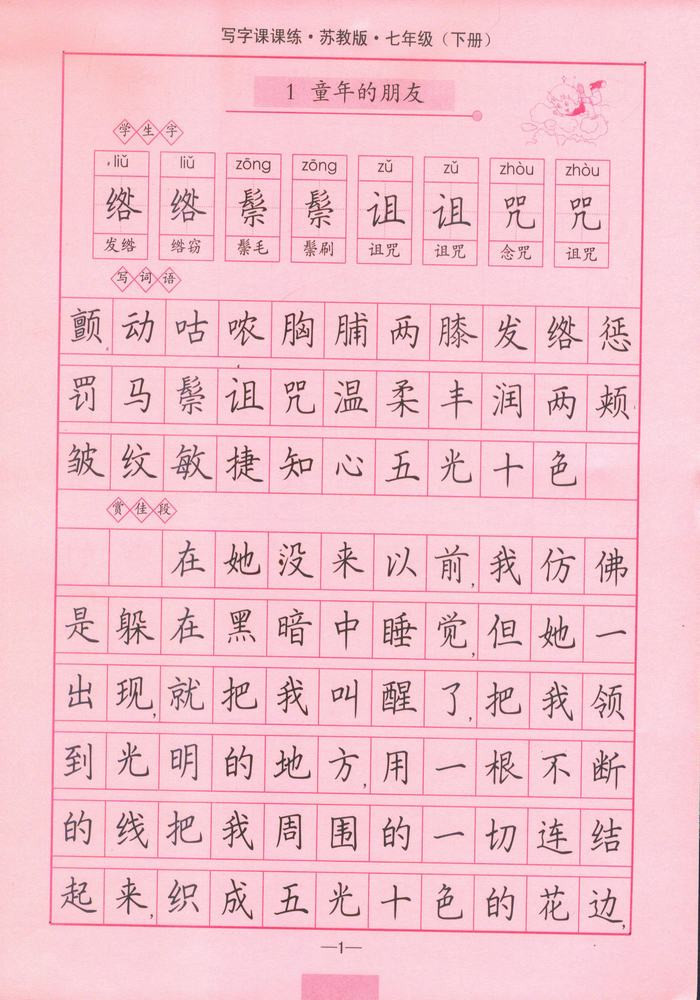 写字课课练·苏教版·七年级（下册）
1 童年的朋友
学生字
liǔ liǔ zōng zōng zǔ zǔ zhòu zhòu
绺 绺 鬃 鬃 诅 诅 咒 咒
发绺 绺窃 鬃毛 鬃刷 诅咒 诅咒 念咒 诅咒
写词语
颤动咕哝胸脯两膝发绺惩
罚马鬃诅咒温柔丰润两颊
皱纹敏捷知心五光十色
赏佳段
在她没来以前,我仿佛
是躲在黑暗中睡觉,但她一
出现,就把我叫醒了,把我领
到光明的地方,用一根不断
的线把我周围的一切连结
起来,织成五光十色的花边,
—1—